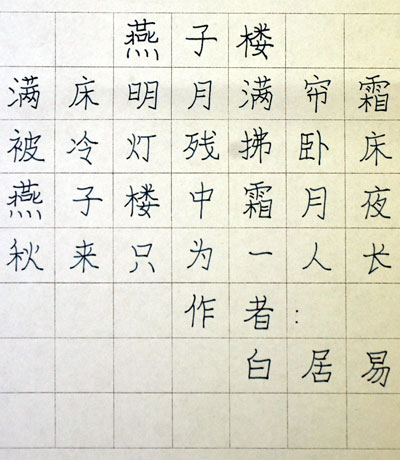 燕子楼
满床明月满帘霜
被冷灯残拂卧床
燕子楼中霜月夜
秋来只为一人长
作者:
白居易